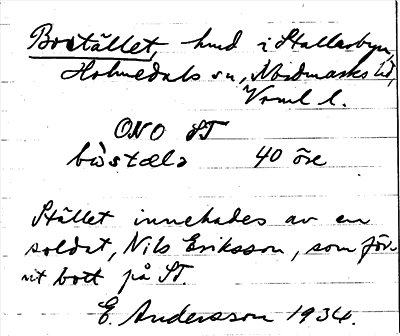 Bostället, hmd i Stallarbyn,
Holmedals sn, Nordmarks hd,
Vrml l.
ONO ST
bòstæla 40 öre
Stället innehades av en
soldat, Nils Eriksson, som förr
bott på ST.
E. Andersson 1934.